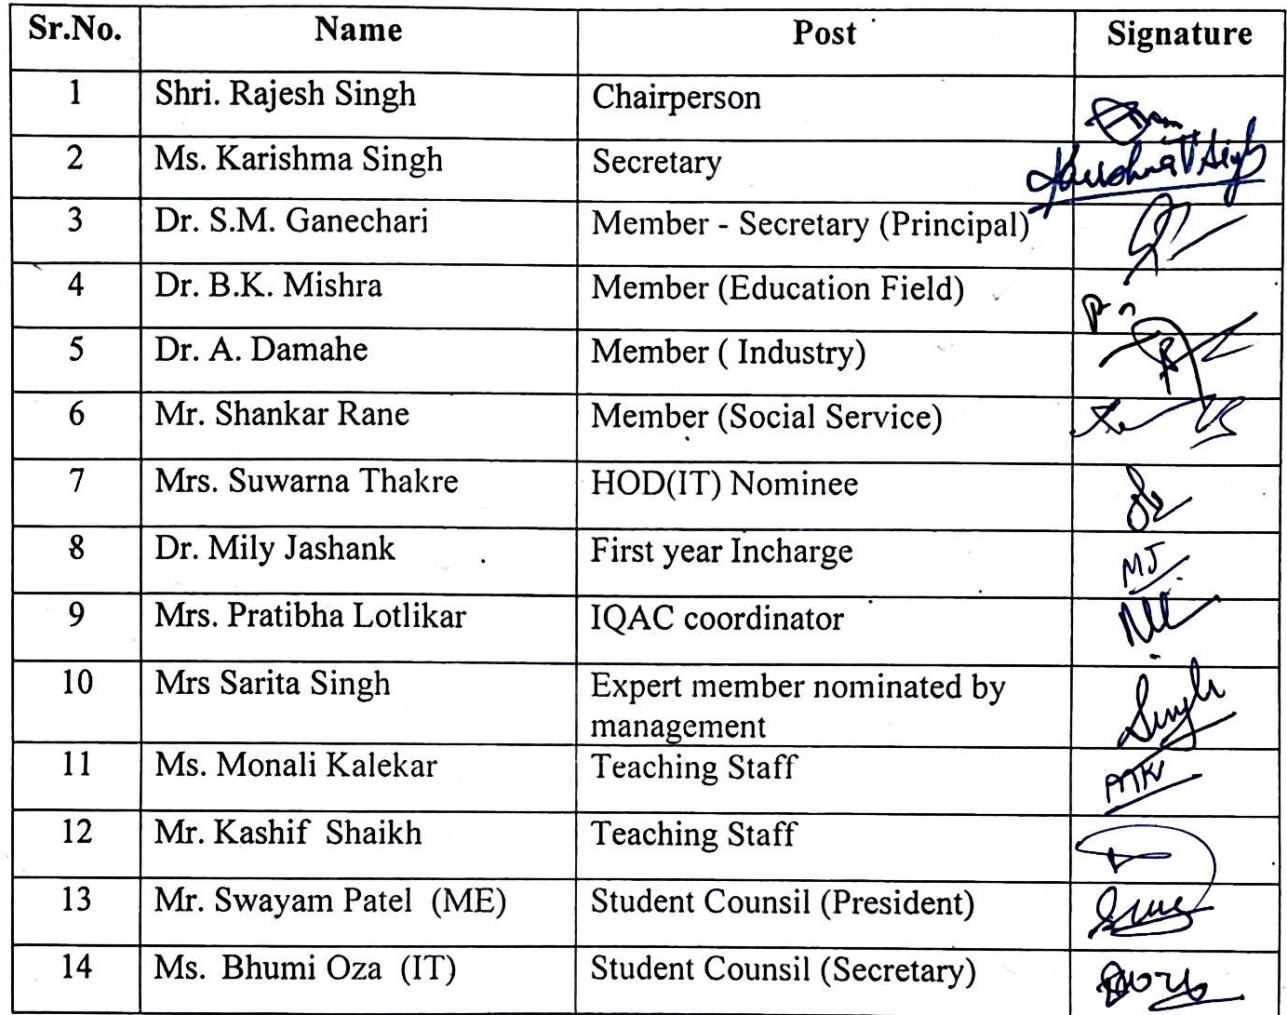 Sr.No. Name Post Signature
1 Shri. Rajesh Singh Chairperson
2 Ms. Karishma Singh Secretary
3 Dr. S.M. Ganechari Member - Secretary (Principal)
4 Dr. B.K. Mishra Member (Education Field)
5 Dr. A. Damahe Member ( Industry)
6 Mr. Shankar Rane Member (Social Service)
7 Mrs. Suwarna Thakre HOD(IT) Nominee
8 Dr. Mily Jashank First year Incharge MJ
9 Mrs. Pratibha Lotlikar IQAC coordinator
10 Mrs Sarita Singh Expert member nominated by
management Singh
11 Ms. Monali Kalekar Teaching Staff
12 Mr. Kashif Shaikh Teaching Staff
13 Mr. Swayam Patel (ME) Student Counsil (President)
14 Ms. Bhumi Oza (IT) Student Counsil (Secretary)